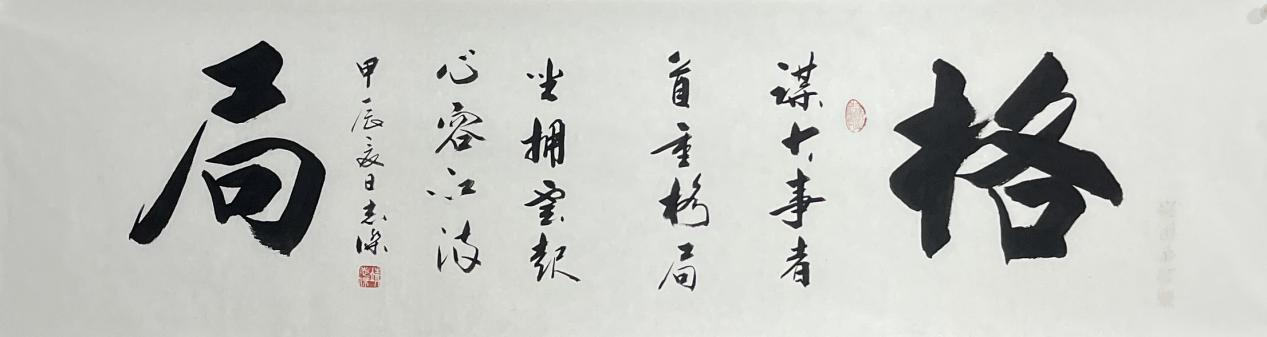 格
谋大事者
首重格局
坐拥云起
心容江海
甲辰夏日志
局